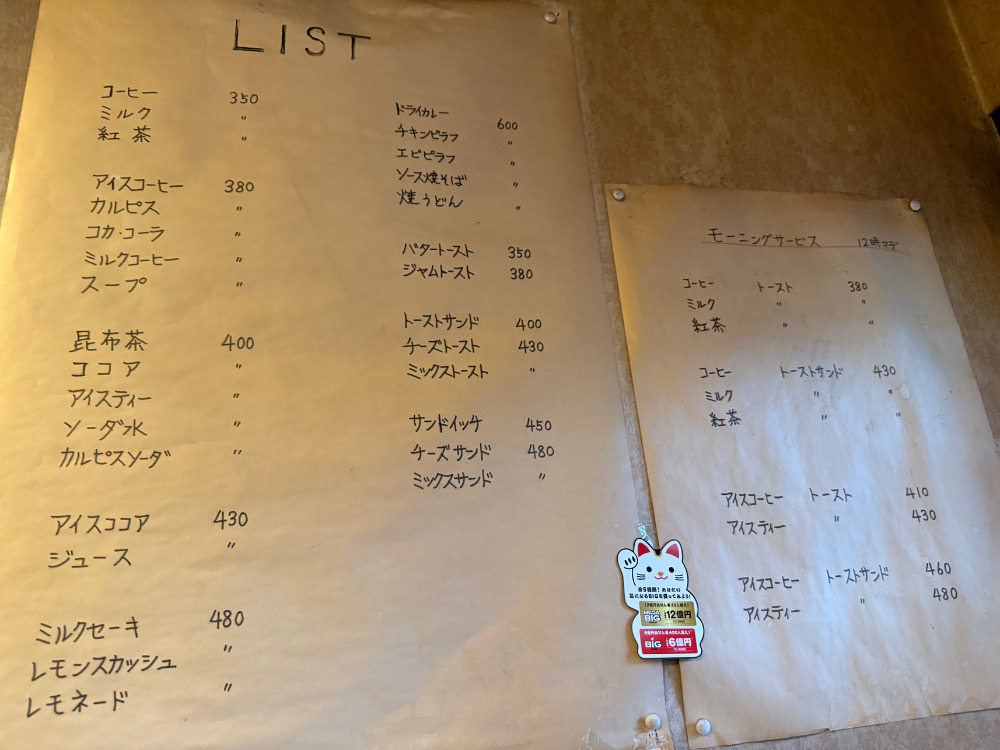 LIST
コーヒー 350
ミルク 〃
紅茶 〃
アイスコーヒー 380
カルピス 〃
コカ・コーラ 〃
ミルクコーヒー 〃
スープ 〃
昆布茶 400
ココア 〃
アイスティー 〃
ソーダ水 〃
カルピスソーダ 〃
アイスココア 430
ジュース 〃
ミルクセーキ 480
レモンスカッシュ 〃
レモネード 〃
ドライカレー 600
チキンピラフ 〃
エビピラフ 〃
ソース焼そば 〃
焼うどん 〃
バタートースト 350
ジャムトースト 380
トーストサンド 400
チーズトースト 430
ミックストースト 〃
サンドイッチ 450
チーズサンド 480
ミックスサンド 〃
モーニングサービス 12時マデ
コーヒー トースト 380
ミルク 〃 〃
紅茶 〃 〃
コーヒー トーストサンド 430
ミルク 〃 〃
紅茶 〃 〃
アイスコーヒー トースト 410
アイスティー 〃 430
アイスコーヒー トーストサンド 460
アイスティー 〃 480
BIG 12億円
BIG 6億円